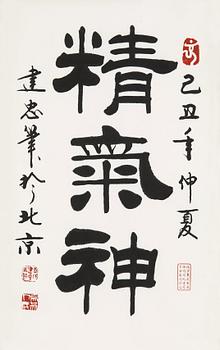 己丑年仲夏
精氣神
建忠筆於北京